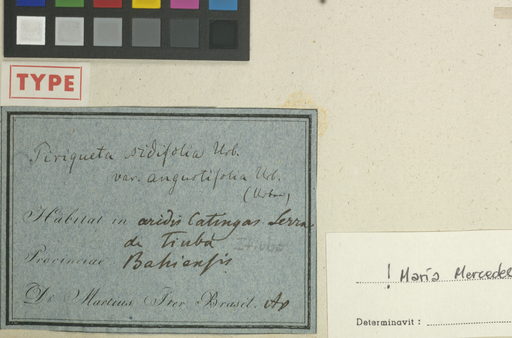 TYPE
Piriqueta sidifolia Urb.
var. angustifolia Urb.
(Urban)
Habitat in aridis Catingas Serra
de Tiuba Itiuba
Provinciae Bahiensis
De Martius Iter Brasil.
! María Mercedes
Determinavit :